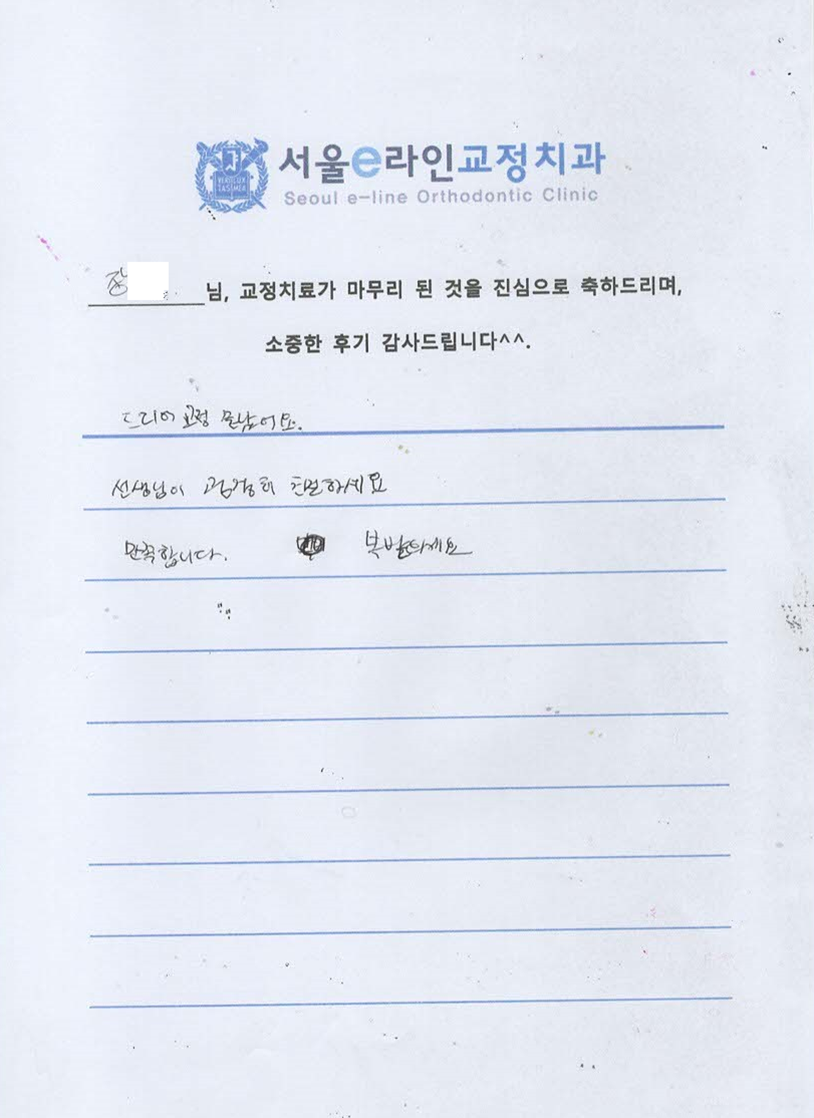 서울e라인교정치과
Seoul e-line Orthodontic Clinic
장 님, 교정치료가 마무리 된 것을 진심으로 축하드리며,
소중한 후기 감사드립니다^^.
드디어 교정 끝났어요.
선생님이 굉장히 친절하세요
만족합니다. 복받으세요